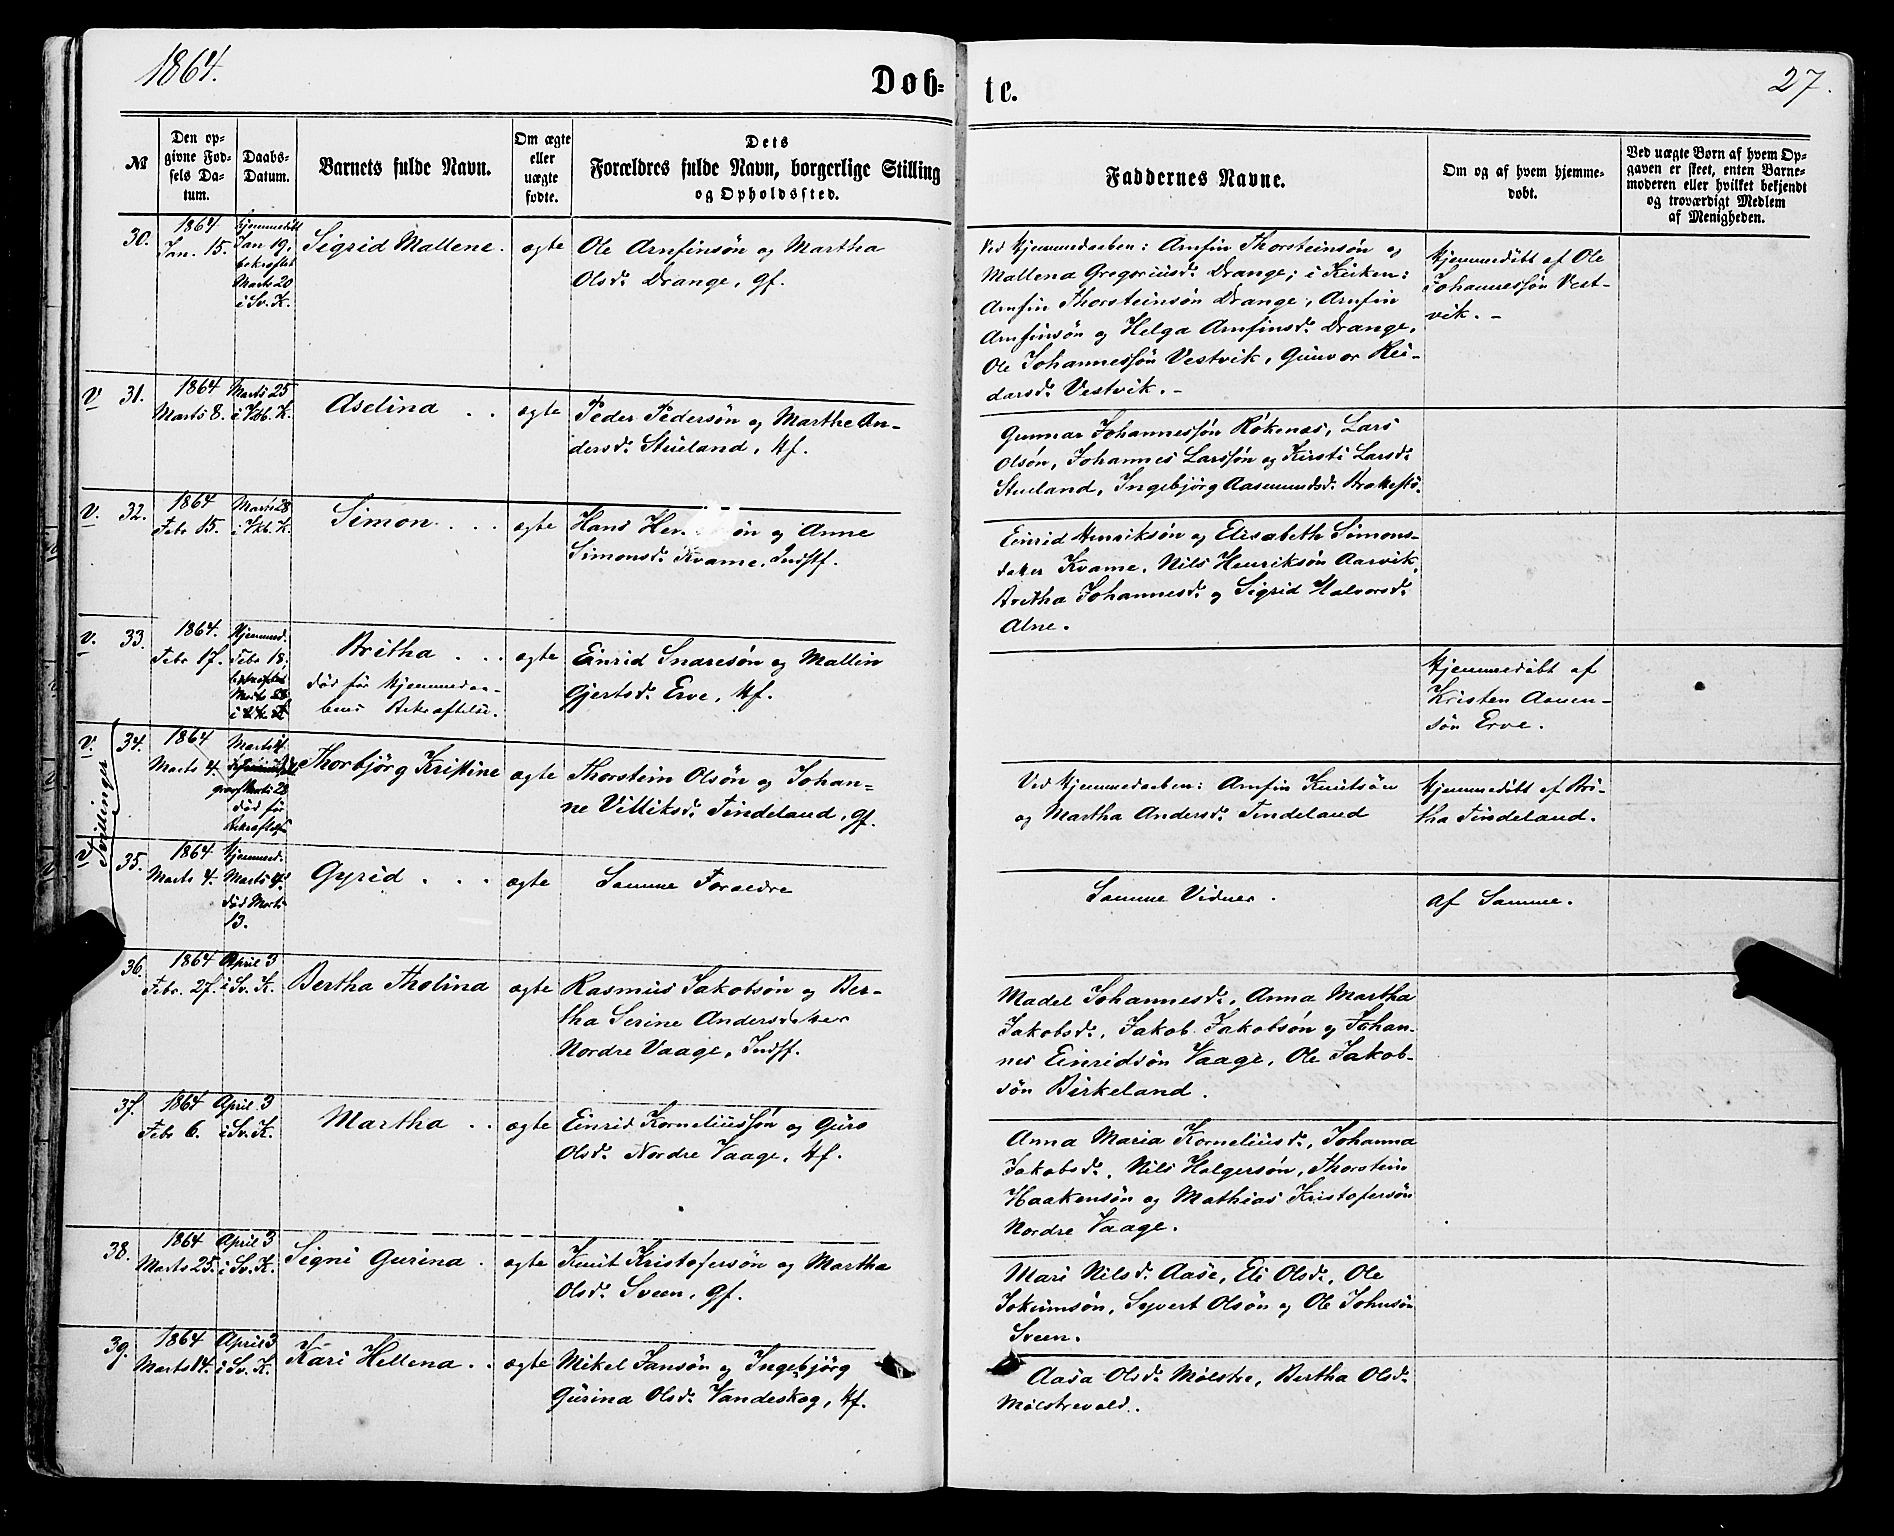 1864.
Døb=
te.
27.
№
Den op-
givne Fød-
sels Da-
tum.
Daabs-
Datum.
Barnets fulde Navn.
Om ægte
eller
uægte
fødte.
Dets
Forældres fulde Navn, borgerlige Stilling
og Opholdssted.
Faddernes Navne.
Om og af hvem hjemme-
døbt.
Ved uægte Børn af hvem Op-
gaven er skeet, enten Barne-
moderen eller hvilket bekjendt
og troværdigt Medlem
af Menigheden.
30.
1864
Jan. 15.
Hjemmedøbt
Jan 19,
bekræftet
Marts 20
i Sv. K.
Sigrid Mallene.
ægte
Ole Arnfinsøn og Martha
Olsd. Drange, Gf.
Ved Hjemmedaaben: Arnfin Thorsteinsøn og
Mallena Gregoriusd. Drange; i Kirken:
Arnfin Thorsteinsøn Drange, Arnfin
Arnfinsøn og Helga Arnfinsd. Drange,
Ole Johannessøn Vestvik, Gunvor Rei-
darsd. Vestvik. -
Hjemmedøbt af Ole
Johannessøn Vest-
vik. -
V
31.
1864
Marts 8.
Marts 25
i Vkb. K.
Aselina . .
ægte
Peder Pedersøn og Marthe An-
dersd. Stueland, Hf.
Gunnar Johannessøn Røkenes, Lars
Olsøn, Johannes Larssøn og Kirsti Larsd.
Stueland, Ingebjørg Aasmundsd.
V.
32.
1864
Febr 15.
Marts 28
i Vkb. K.
Simon . . .
ægte
Hans øn og Anne
Simonsd. Kvame, Indstf.
Einrid Henriksøn og Elisabeth Simons-
datter Kvame, Nils Henriksøn Aarvik,
Britha Johannesd. og Sigrid Halvorsd.
Alne.
V.
33.
1864.
Febr 17.
Hjemmed.
Febr 18;
Britha . . .
død før Hjemmedaa-
bens Bekræftelse.
ægte
Einrid Snaresøn og Mallin
Gjertsd. Erve, Hf.
Hjemmedøbt af
Kristen Aamen-
søn Erve.
Tvillinger
V.
34.
1864
Marts 4.
Marts 4
død før
Bekræftelse
Thorbjørg Kristine
ægte
Thorstein Olsøn og Johan-
ne Villiksd. Tindeland, Gf.
Ved Hjemmedaaben: Arnfin Knutsøn
og Martha Andersd. Tindeland
Hjemmedøbt af Bri-
tha Tindeland.
V
35.
1864
Marts 4.
Hjemmed.
Marts 4.
død Marts
13.
Gyrid . . .
ægte
Samme Forældre
Samme Vidner.
af Samme.
36.
1864
Febr. 27.
April 3
i Sv. K.
Bertha Tholina
ægte
Rasmus Jakobsøn og Ber-
tha Serine Andersdatter
Nordre Vaage, Indstf.
Madel Johannesd., Anna Martha
Jakobsd., Jakob Jakobsøn og Johan-
nes Einridsøn Vaage, Ole Jakob-
søn Birkeland.
37.
1864
Febr 6.
April 3
i Sv. K.
Martha . .
ægte
Einrid Korneliussøn og Guro
Olsd. Nordre Vaage, Hf.
Anna Maria Korneliusd., Johanna
Jakobsd., Nils Holgersøn, Thorstein
Haakensøn og Mathias Kristofersøn
Nordre Vaage.
38.
1864
Marts 25.
April 3
i Sv. K.
Signi Gurina .
ægte
Knut Kristofersøn og Martha
Olsd. Sveen, Gf.
Mari Nilsd. Aase, Eli Olsd., Ole
Jokumsøn, Syvert Olsøn og Ole Johnsøn
Sveen.
39.
1864
Marts 14.
April 3
i Sv. K.
Kari Hellena . .
ægte
Mikel Jansøn og Ingebjørg
Gurina Olsd. Vandeskog, Hf.
Aasa Olsd. Mølstre, Bertha Olsd.
Mølstrevold.